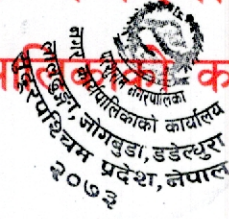 पालिकाको क
परशुराम नगरपालिका
नगर कार्यपालिकाको कार्यालय
जोगबुडा, डडेल्धुरा
सुदूरपश्चिम प्रदेश, नेपाल
२०७३